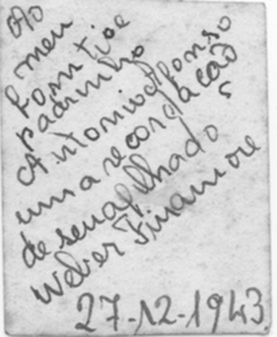 Ao
meu
bom tio e
padrinho
Antonio Afonso
uma recordação
de seu afilhado
Weber Finamore
27-12-1943